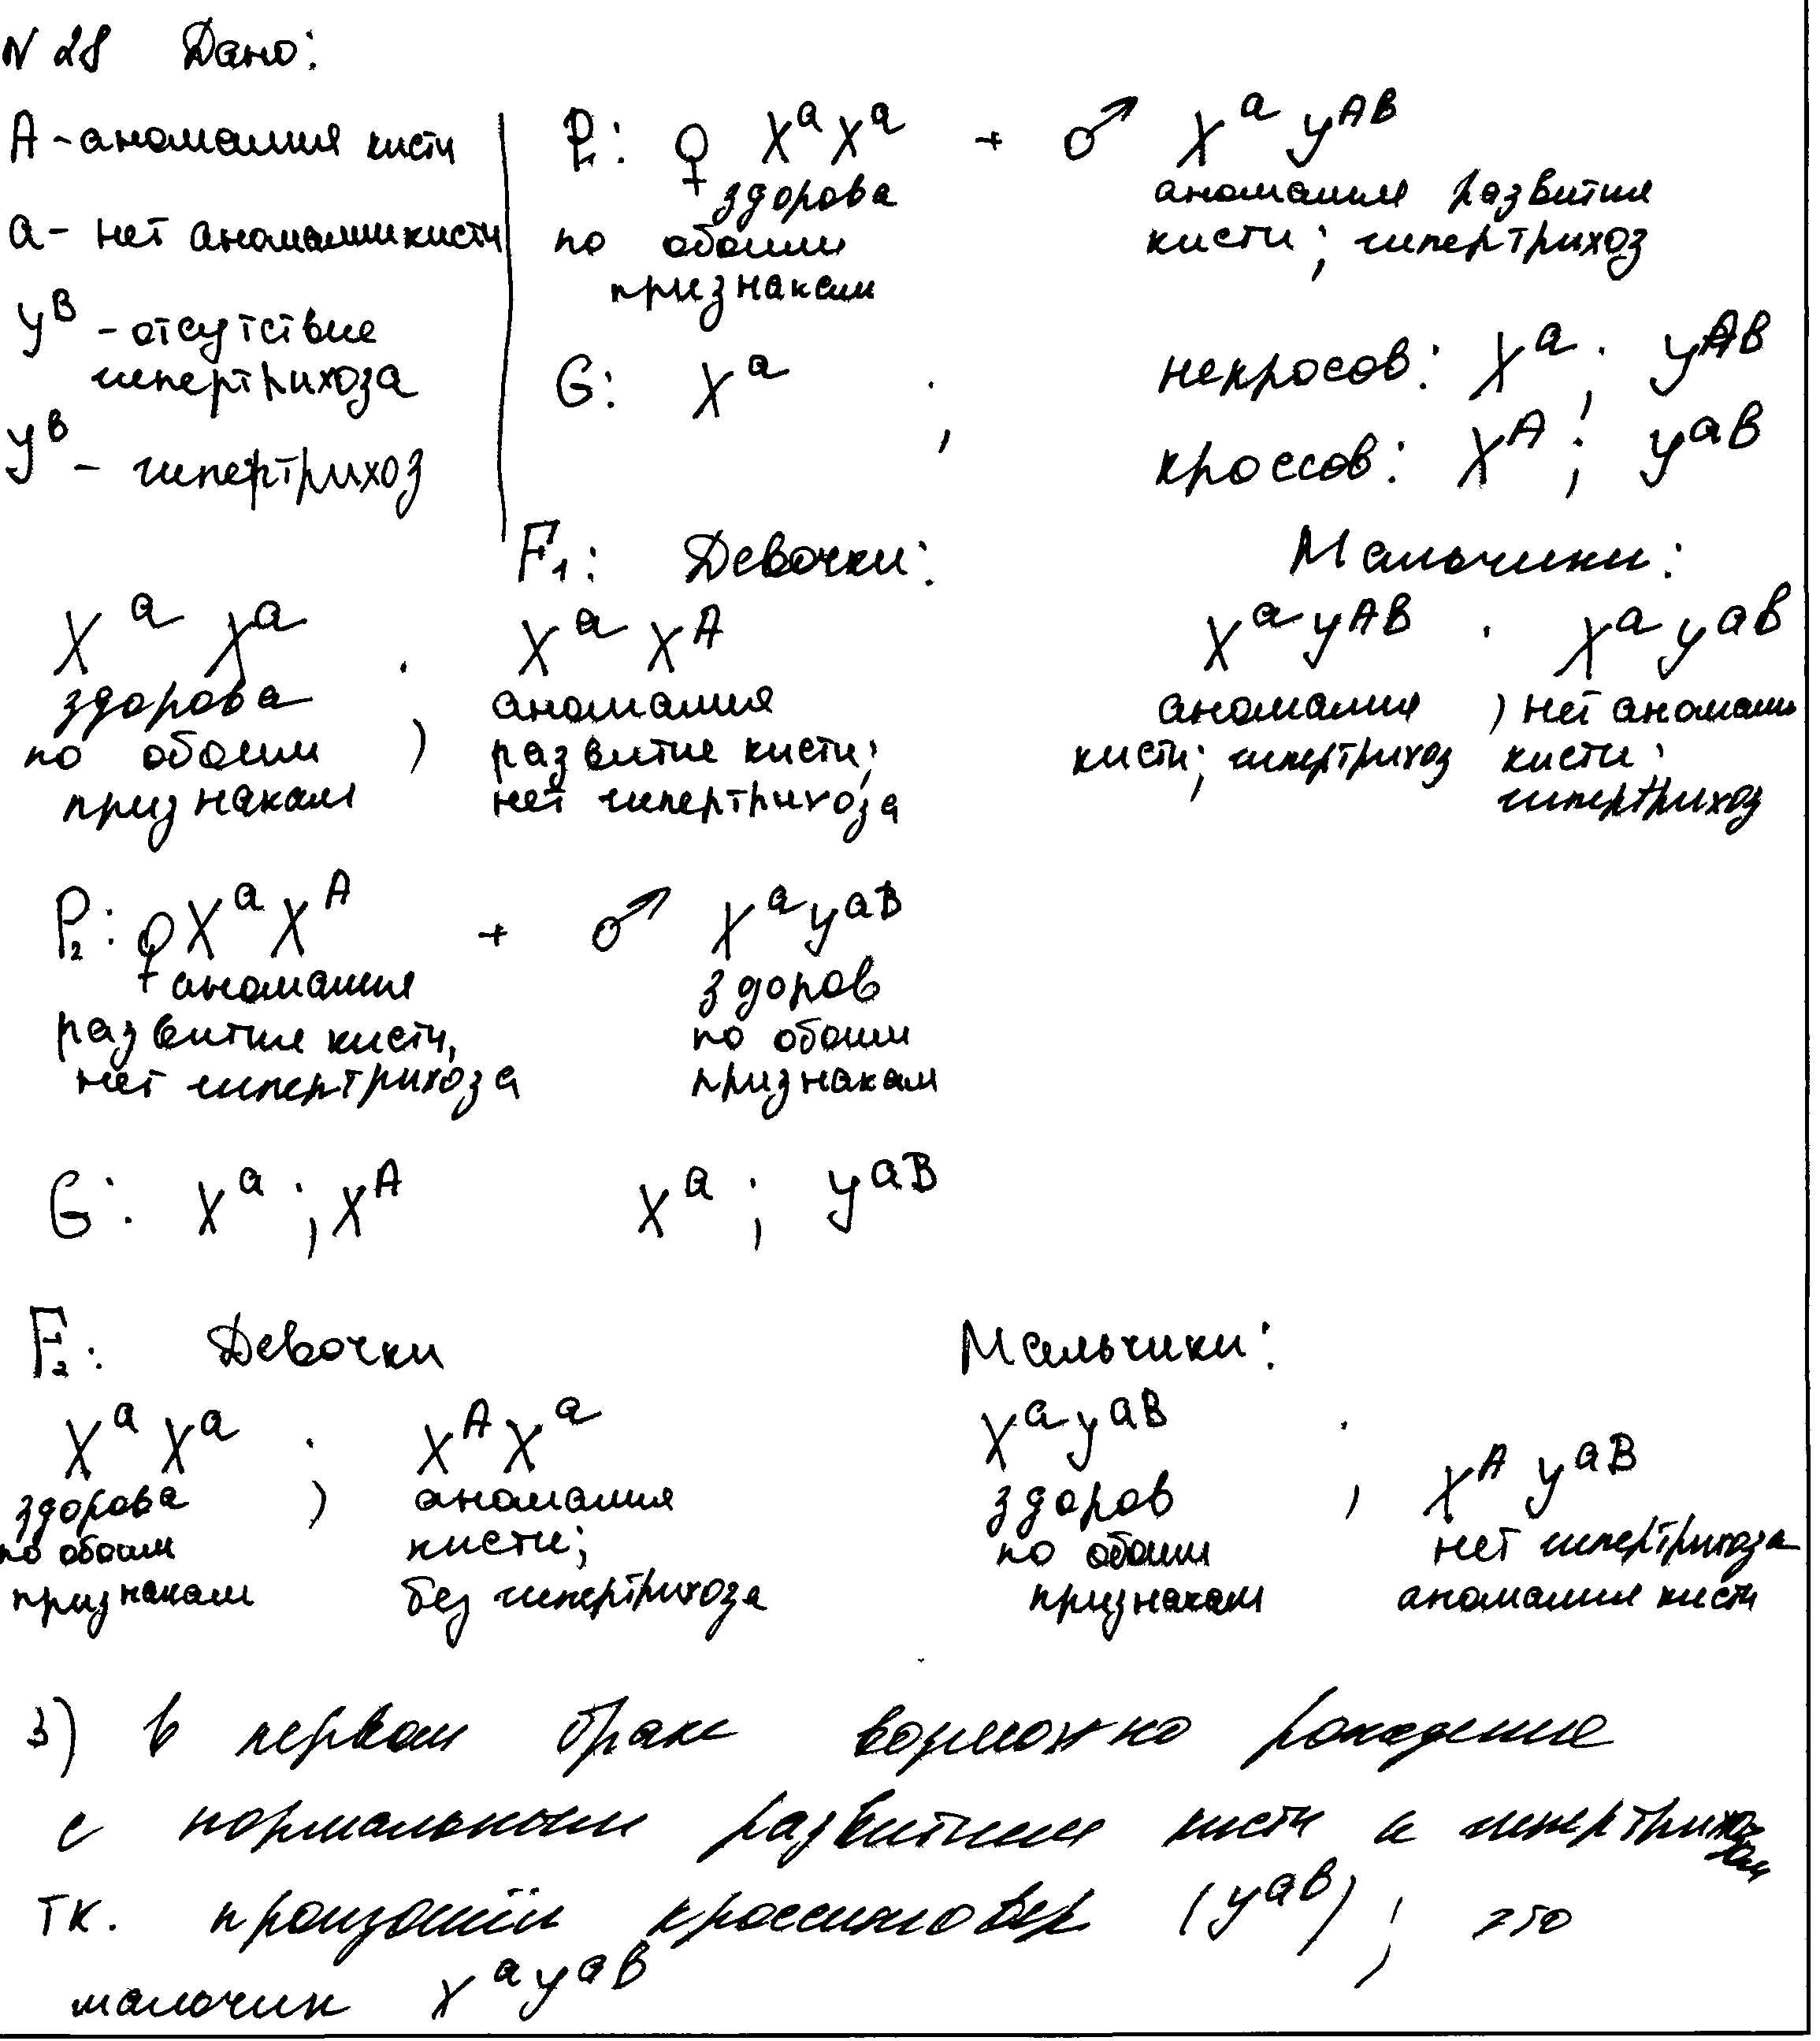 N 28 Дано:
A - аномалия кисти
a - нет аномалии кисти
y^B - отсутствие
гипертрихоза
y^в - гипертрихоз
P₁: ♀ X^a X^a + ♂ X^a y^Aв
здорова
по обоим
признакам
аномалия развития
кисти; гипертрихоз
G: X^a ;
некросов: X^a ; y^Aв
кроссов: X^A ; y^aв
F₁: Девочки: Мальчики:
X^a X^a ; X^a X^A X^a y^Aв ; X^a y^aв
здорова
по обоим
признакам
аномалия
развития кисти;
нет гипертрихоза
аномалия
кисти; гипертрихоз
нет аномалии
кисти;
гипертрихоз
P₂: ♀ X^a X^A + ♂ X^a y^aB
аномалия
развития кисти,
нет гипертрихоза
здоров
по обоим
признакам
G: X^a ; X^A X^a ; y^aB
F₂: Девочки Мальчики:
X^a X^a ; X^A X^a X^a y^aB ; X^A y^aB
здорова
по обоим
признакам
аномалия
кисти;
без гипертрихоза
здоров
по обоим
признакам
нет гипертрихоза
аномалия кисти
3) в первом браке возможно рождение
с нормальным развитием кисти и гипертрихозом
тк. произошёл кроссинговер (y^aв) ; это
мальчик X^a y^aв